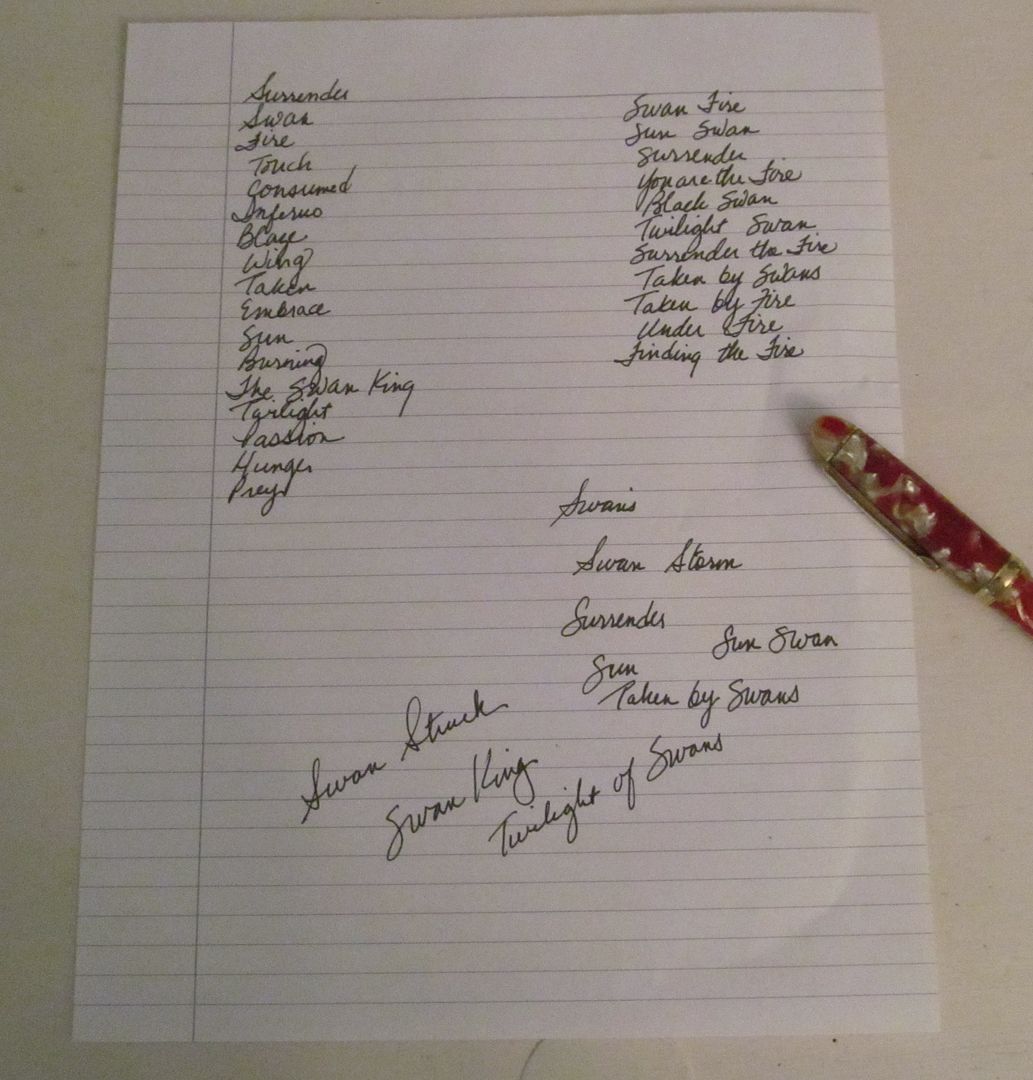 Surrender
Swan
Fire
Touch
Consumed
Inferno
Blaze
Wing
Taken
Embrace
Sun
Burning
The Swan King
Twilight
Passion
Hunger
Prey
Swan Fire
Sun Swan
Surrender
You are the Fire
Black Swan
Twilight Swan
Surrender the Fire
Taken by Swans
Taken by Fire
Under Fire
Finding the Fire
Swans
Swan Storm
Surrender
Sun Swan
Sun
Taken by Swans
Swan Struck
Swan King
Twilight of Swans